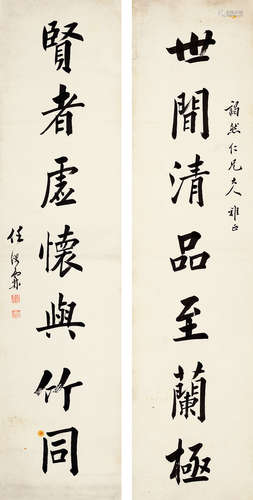 世間清品至蘭極
藹然仁兄大人雅正
賢者虛懷與竹同
任